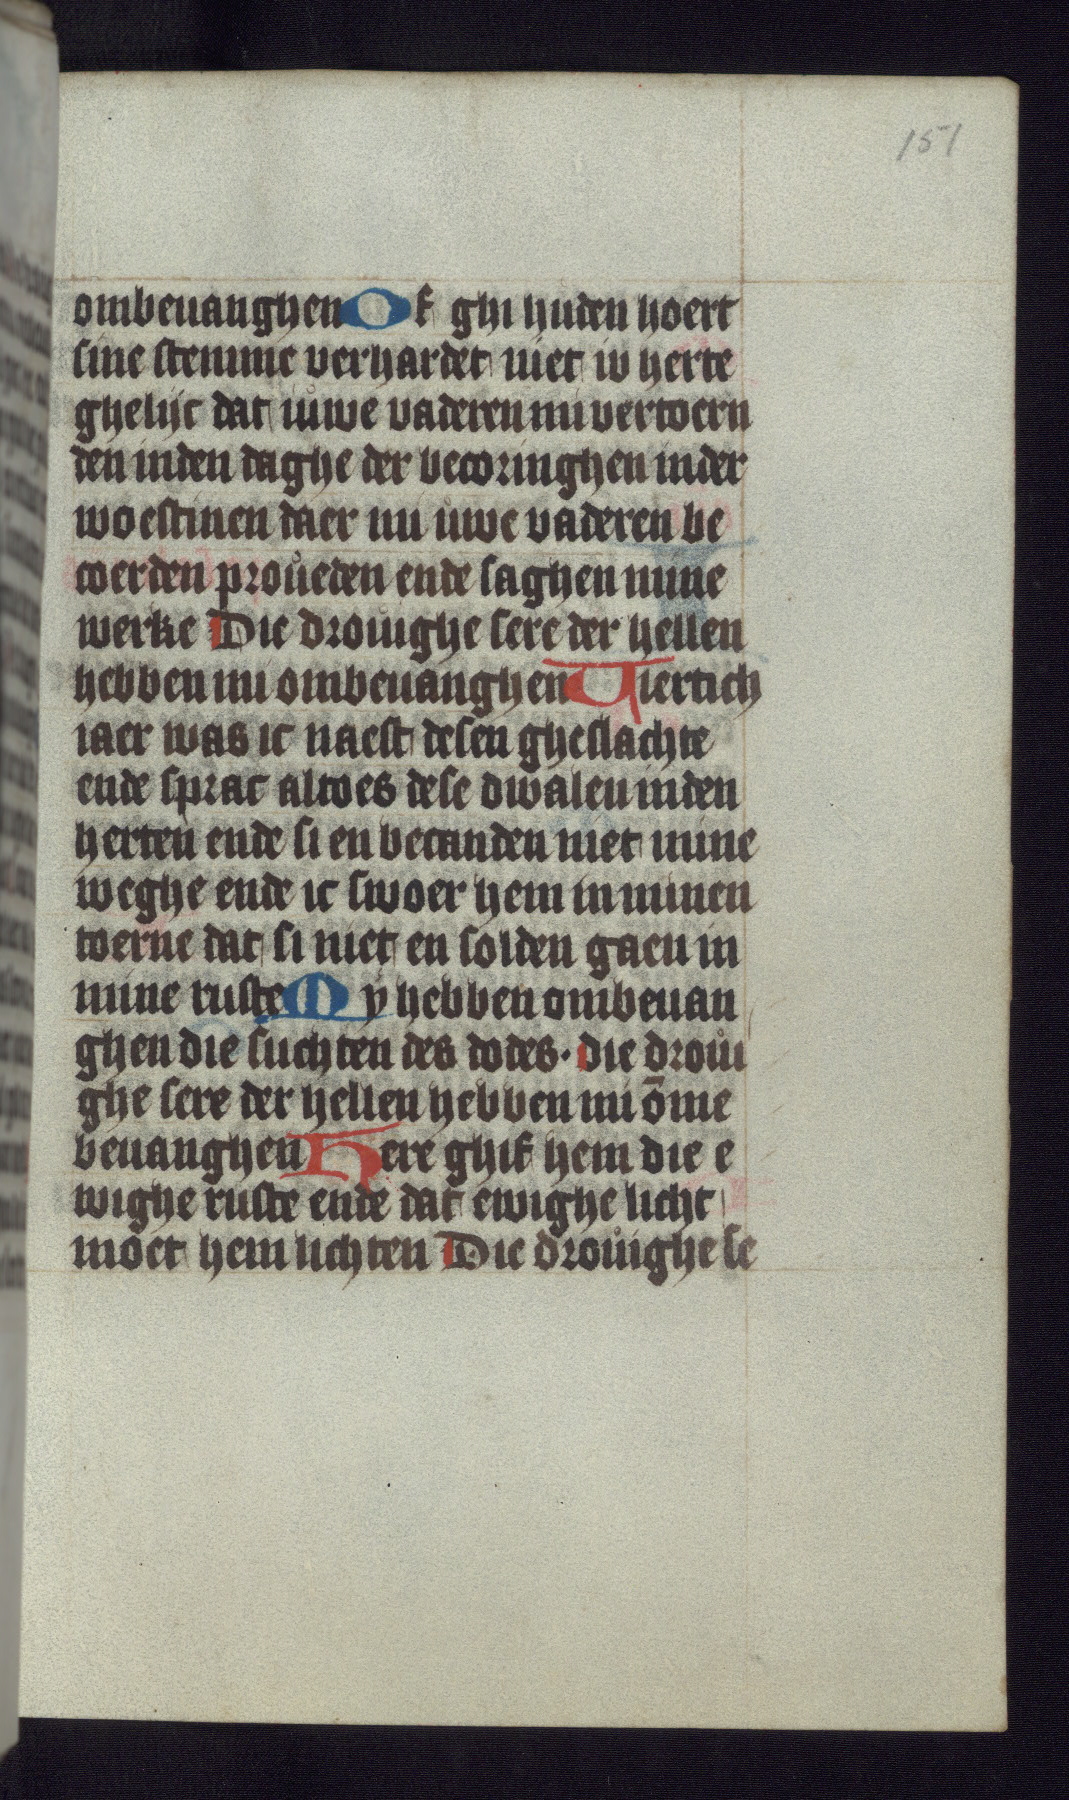 151
ombeuanghen Of ghi huden hoert
sine stemme verhardet niet iv herte
ghelijc dat iuwe vaderen mi vertoern
den inden daghe der becoringhen inder
woestinen daer mi uwe vaderen be
coerden proueden ende saghen mine
werke Die drouighe sere der hellen
hebben mi ombeuanghen Viertich
iaer was ic naest desen gheslachte
ende sprac altoes dese dwalen inden
herten ende si en becanden niet mine
weghe ende ic swoer hem in minen
toerne dat si niet en solden gaen in
mine ruste My hebben ombeuan
ghen die suchten des dodes · die droui
ghe sere der hellen hebben mi ōme
beuanghen Here ghif hem die e
wighe ruste ende dat ewighe licht
moet hem lichten Die drouighe se